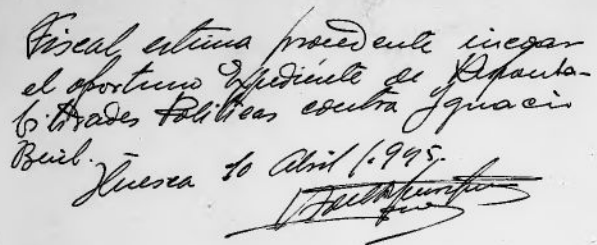 Fiscal estima procedente incoar
el oportuno Expediente de Responsa-
bilidades Politicas contra Ygnacio
Beuil.
Huesca 10 Abril 1.945.